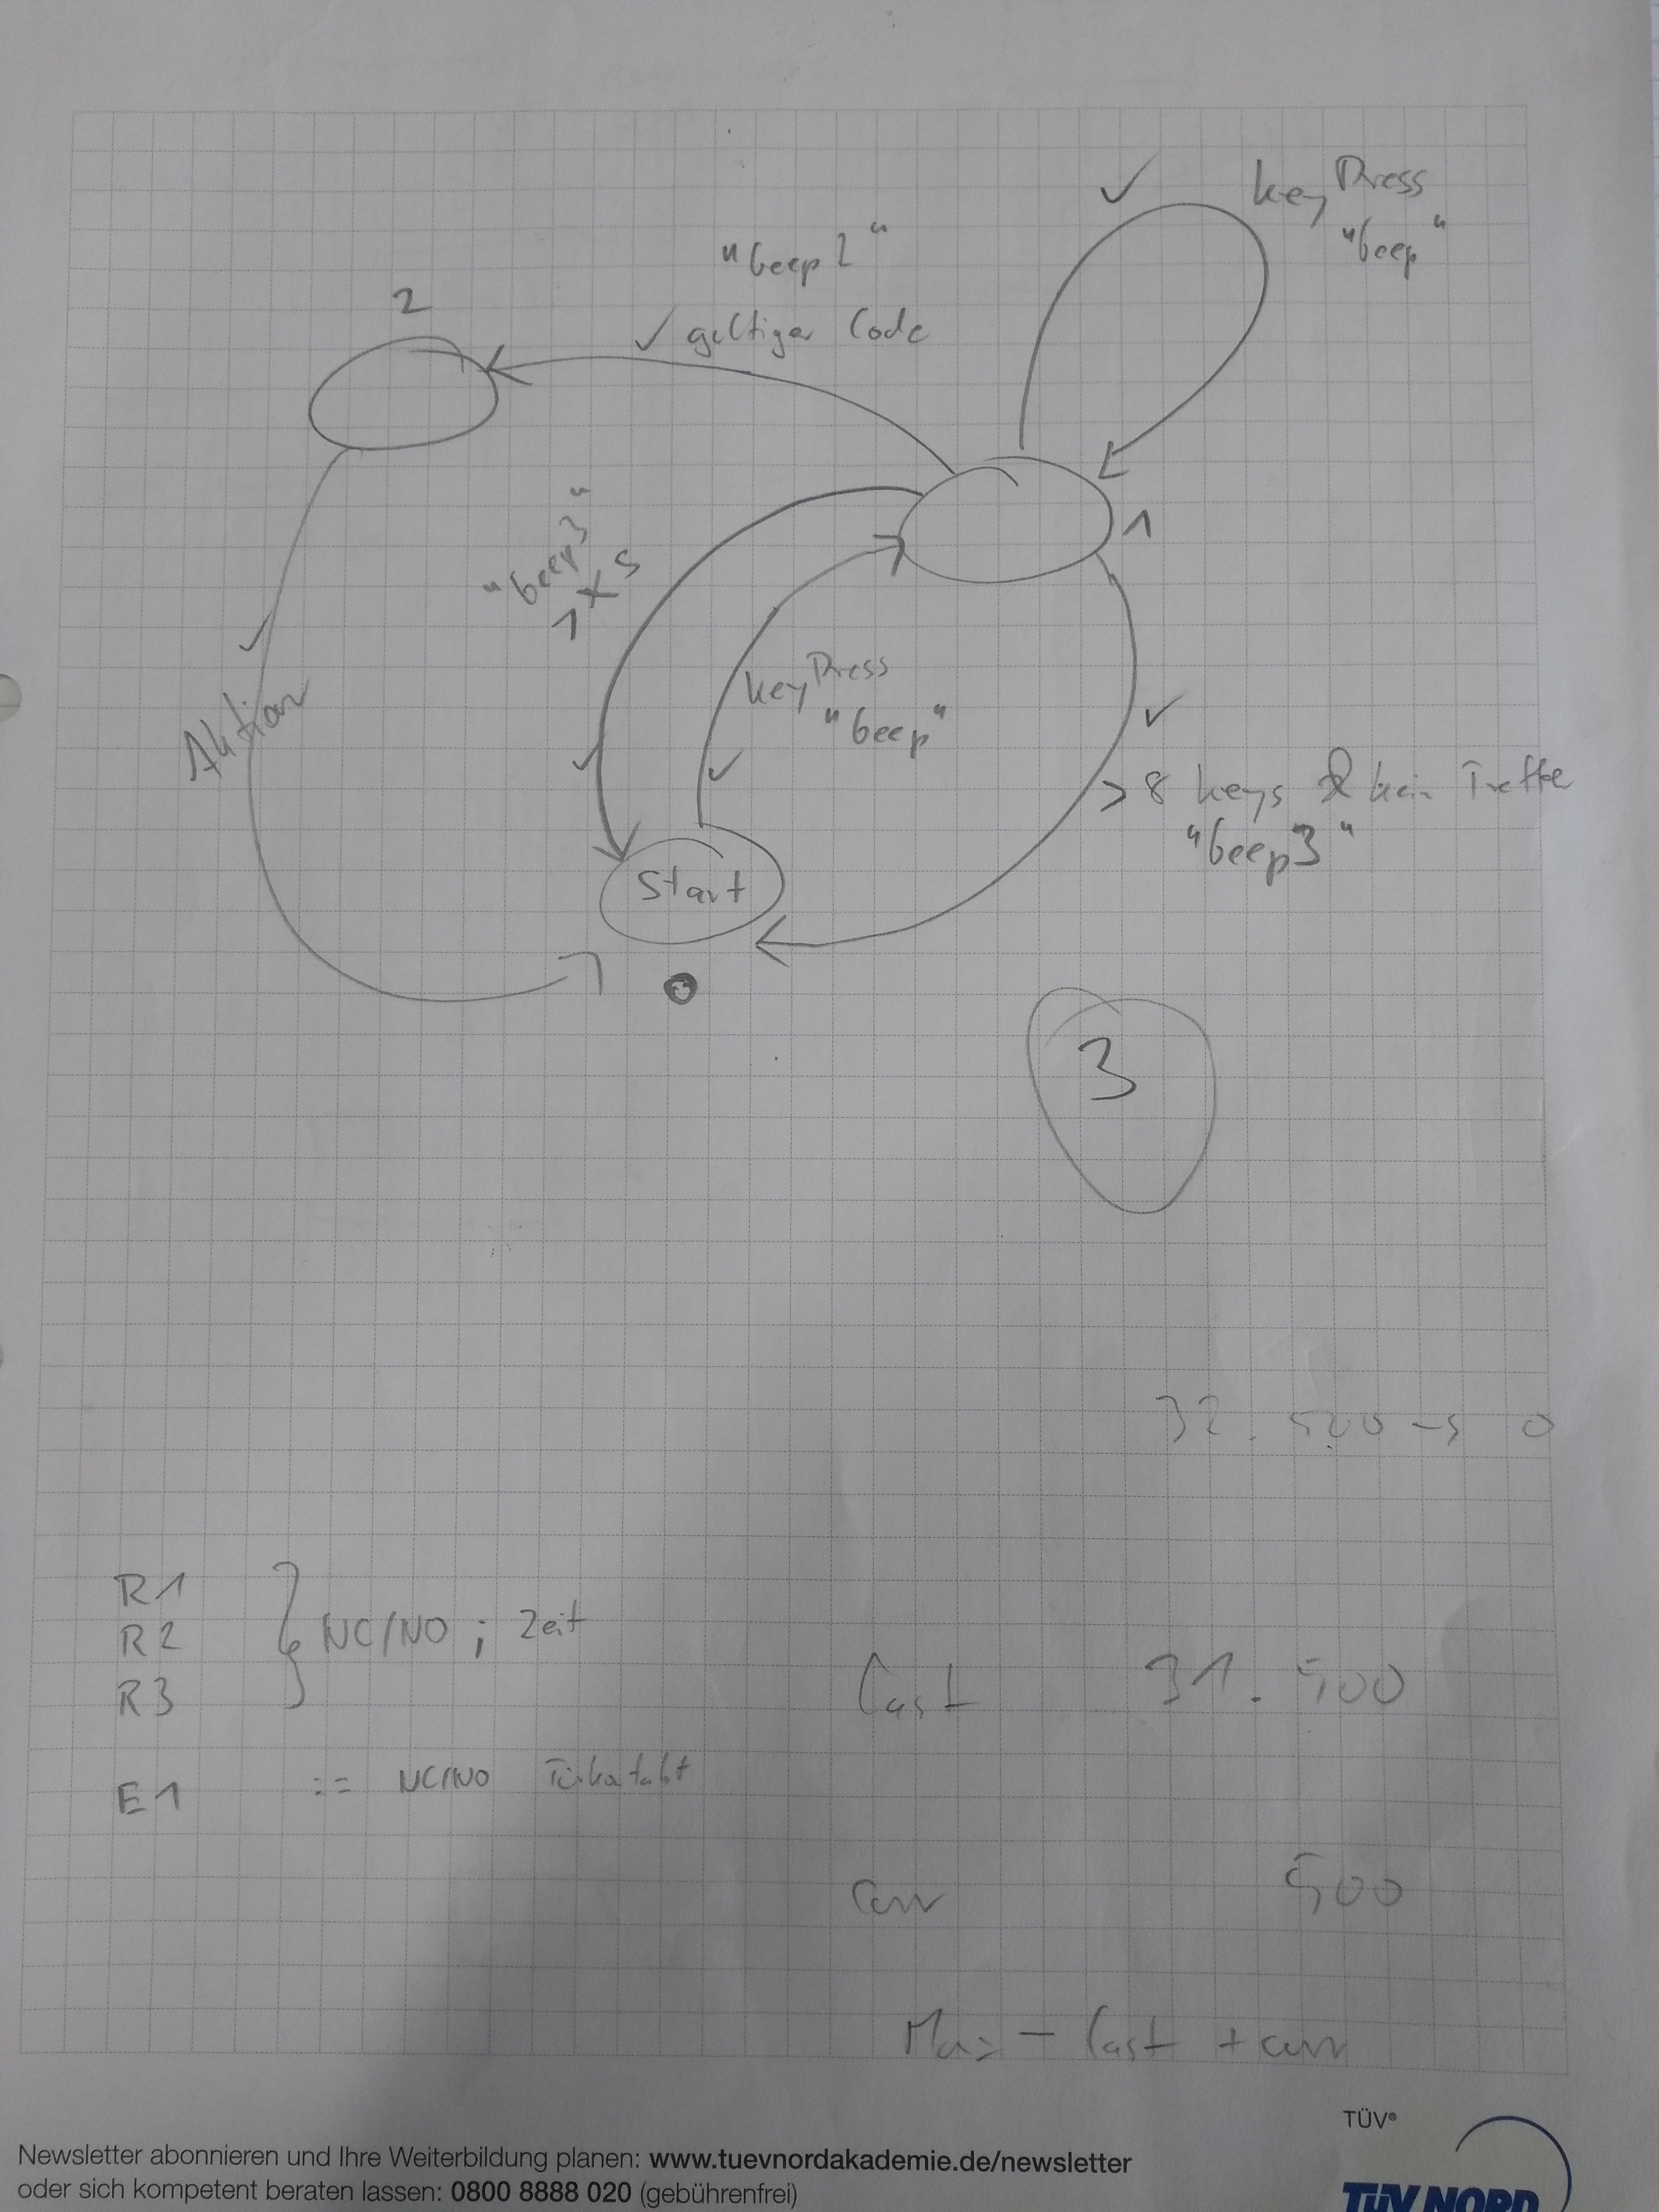 key Press
"beep"
"beep2"
gültiger Code
2
1
"beep3"
> x s
key Press
"beep"
Aktion
> 8 keys & kein Treffer
"beep3"
Start
3
32.500 → 0
R1
R2
R3
NC/NO ; Zeit
E1 := NC/NO Türkontakt
last 31.500
curr 500
Max - last + curr
TÜV®
Newsletter abonnieren und Ihre Weiterbildung planen: www.tuevnordakademie.de/newsletter
oder sich kompetent beraten lassen: 0800 8888 020 (gebührenfrei)
TÜV NORD